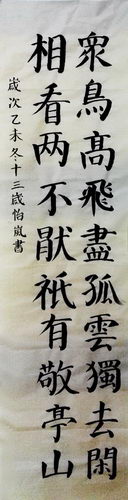 衆鳥髙飛盡孤雲獨去閑
相看两不厭祇有敬亭山
歲次乙未冬十三歲怡嵐書